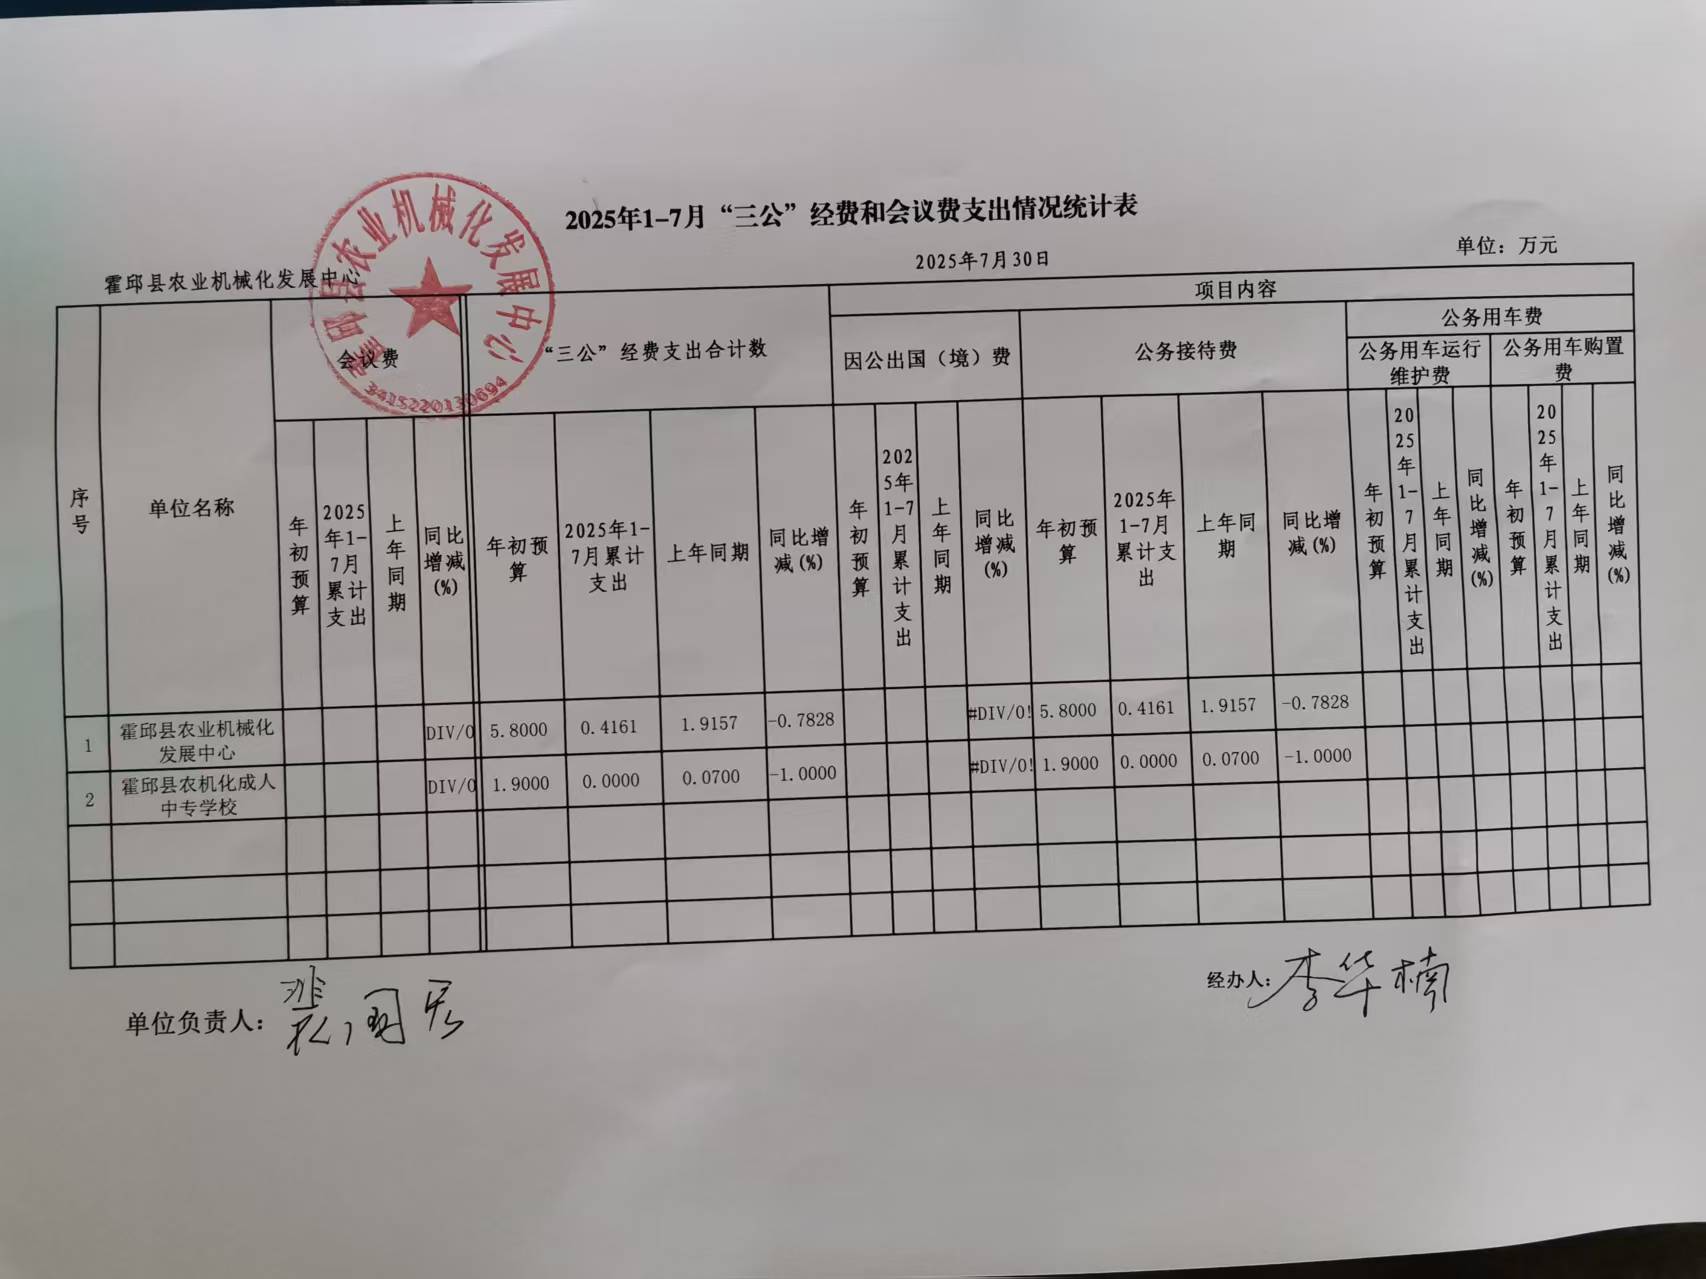 霍邱县农业机械化发展中心
3415220130694
2025年1-7月“三公”经费和会议费支出情况统计表
2025年7月30日
单位：万元
霍邱县农业机械化发展中心
序号
单位名称
会议费
“三公”经费支出合计数
项目内容
因公出国（境）费
公务接待费
公务用车费
公务用车运行维护费
公务用车购置费
年初预算
2025年1-7月累计支出
上年同期
同比增减(%)
年初预算
2025年1-7月累计支出
上年同期
同比增减(%)
年初预算
2025年1-7月累计支出
上年同期
同比增减(%)
年初预算
2025年1-7月累计支出
上年同期
同比增减(%)
年初预算
2025年1-7月累计支出
上年同期
同比增减(%)
年初预算
2025年1-7月累计支出
上年同期
同比增减(%)
1 霍邱县农业机械化发展中心 DIV/0 5.8000 0.4161 1.9157 -0.7828 #DIV/0! 5.8000 0.4161 1.9157 -0.7828
2 霍邱县农机化成人中专学校 DIV/0 1.9000 0.0000 0.0700 -1.0000 #DIV/0! 1.9000 0.0000 0.0700 -1.0000
单位负责人：
经办人：李华楠